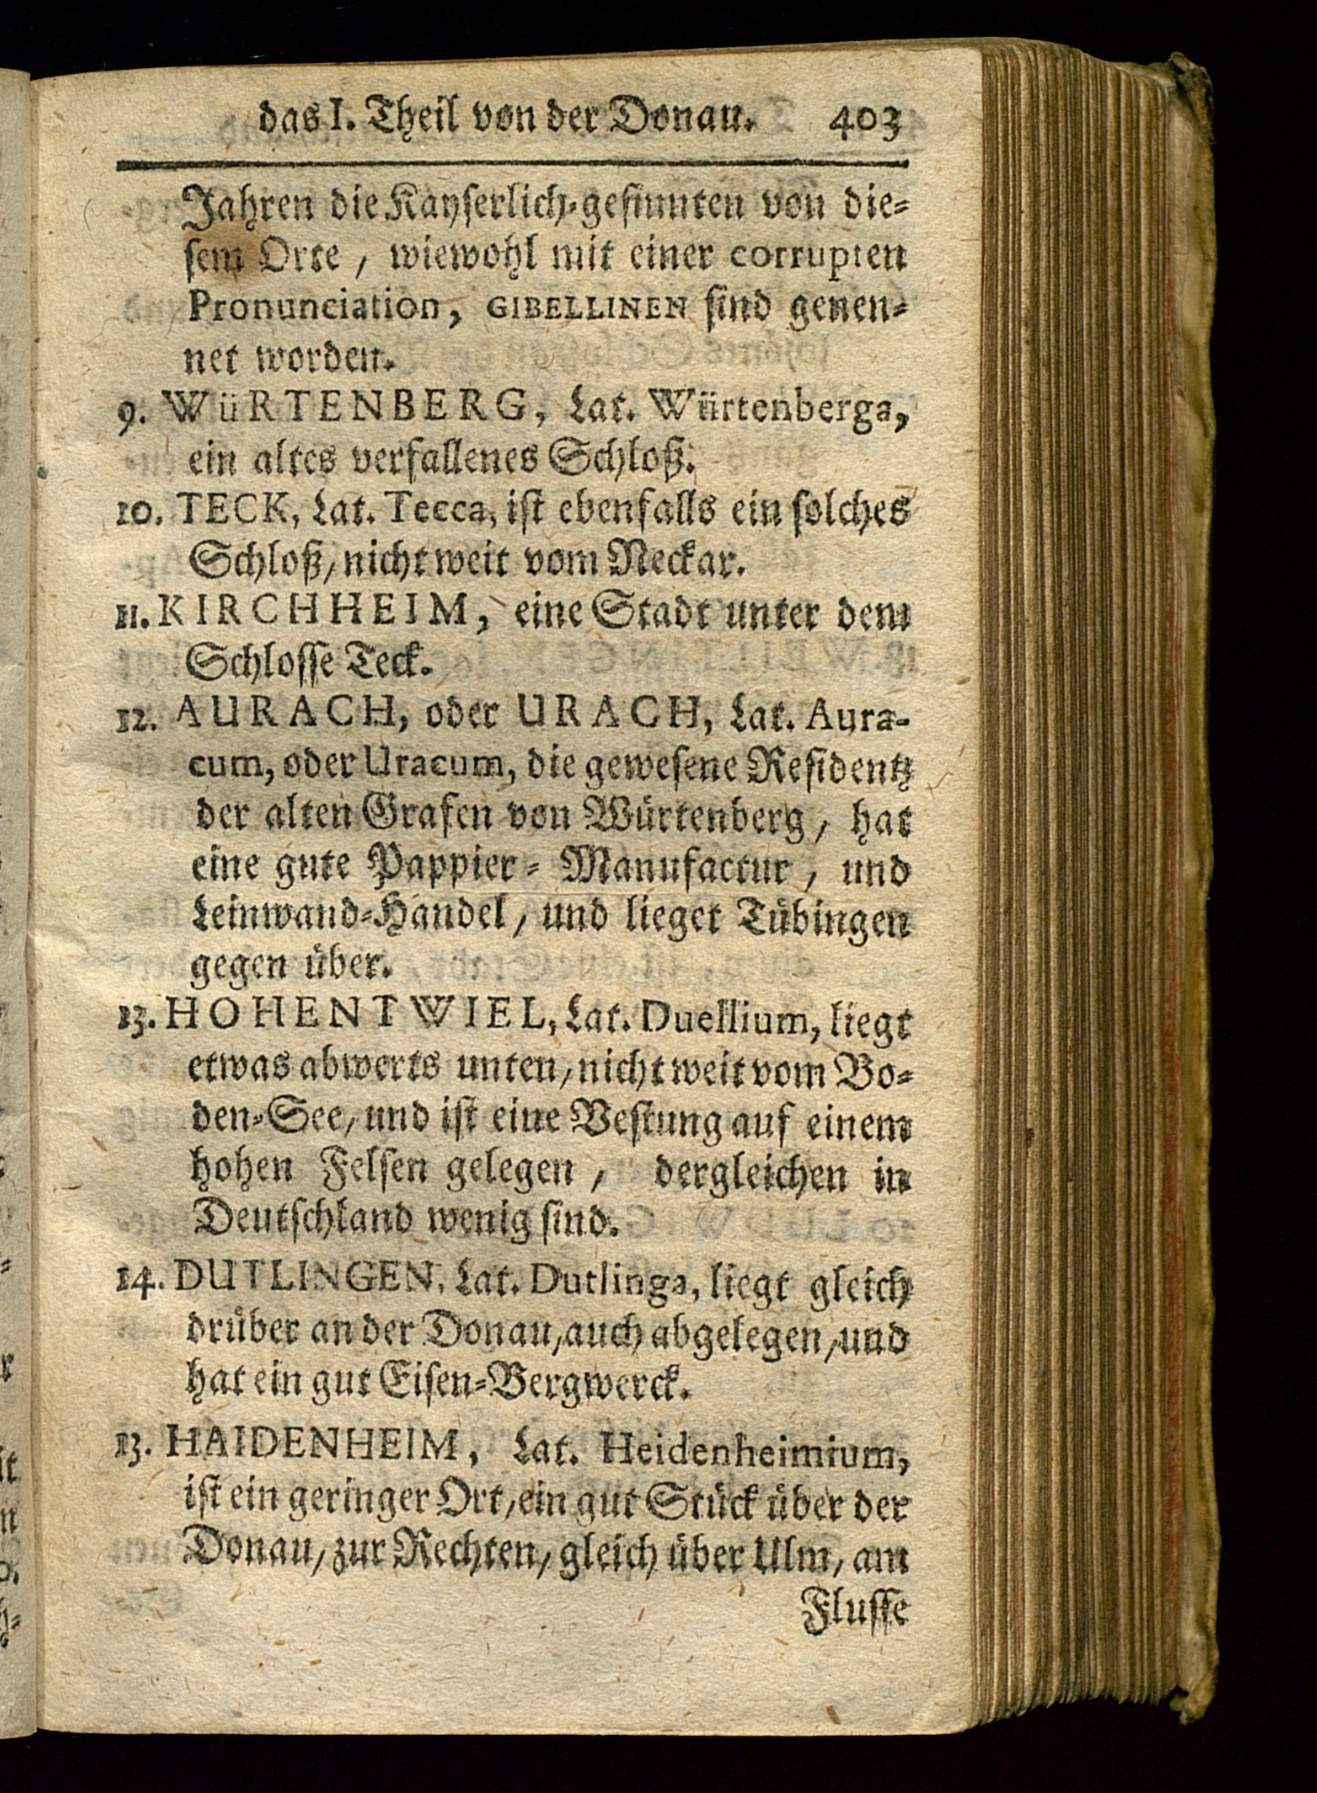 das I. Theil von der Donau. 403
Jahren die Kayserlich-gesinnten von die-
sem Orte, wiewohl mit einer corrupten
Pronunciation, GIBELLINEN sind genen-
net worden.
9. WüRTENBERG, Lat. Würtenberga,
ein altes verfallenes Schloß.
10. TECK, Lat. Tecca, ist ebenfalls ein solches
Schloß, nicht weit vom Neckar.
11. KIRCHHEIM, eine Stadt unter dem
Schlosse Teck.
12. AURACH, oder URACH, Lat. Aura-
cum, oder Uracum, die gewesene Residentz
der alten Grafen von Würtenberg, hat
eine gute Pappier-Manufactur, und
Leinwand-Handel, und lieget Tübingen
gegen über.
13. HOHENTWIEL, Lat. Duellium, liegt
etwas abwerts unten, nicht weit vom Bo-
den-See, und ist eine Vestung auf einem
hohen Felsen gelegen, dergleichen in
Deutschland wenig sind.
14. DUTLINGEN, Lat. Dutlinga, liegt gleich
drüber an der Donau, auch abgelegen, und
hat ein gut Eisen-Bergwerck.
13. HAIDENHEIM, Lat. Heidenheimium,
ist ein geringer Ort, ein gut Stück über der
Donau, zur Rechten, gleich über Ulm, am
Flusse